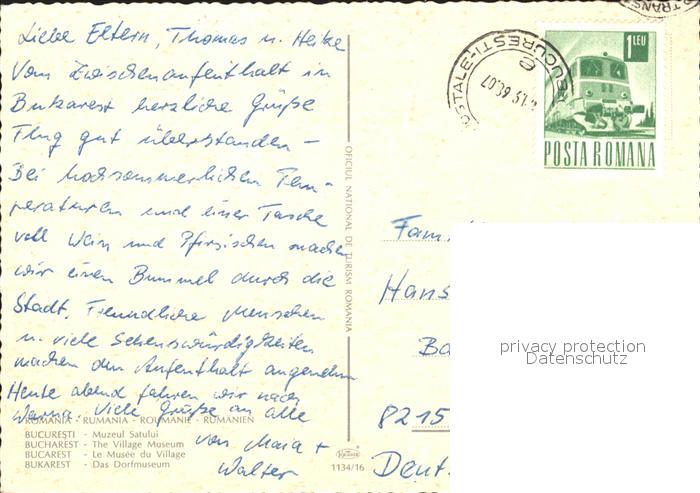 Liebe Eltern, Thomas u. Heike
Vom Zwischenaufenthalt in
Bukarest herzliche Grüße
Flug gut überstanden –
Bei hochsommerlichen Tem-
peraturen und einer Tasche
voll Wein und Pfirsichen machen
wir einen Bummel durch die
Stadt. Freundliche Menschen
u. viele Sehenswürdigkeiten
machen den Aufenthalt angenehm
Heute abend fahren wir nach
Varna. Viele Grüße an alle
von Maria +
Walter
ROMANIA - RUMANIA - ROUMANIE - RUMÄNIEN
BUCUREŞTI - Muzeul Satului
BUCHAREST - The Village Museum
BUCAREST - Le Musée du Village
BUKAREST - Das Dorfmuseum
OFICIUL NATIONAL DE TURISM ROMANIA
1134/16
BUCURESTI
1 LEU
POSTA ROMANA
Fam.
Hans
Ba
8215
Deut
privacy protection
Datenschutz